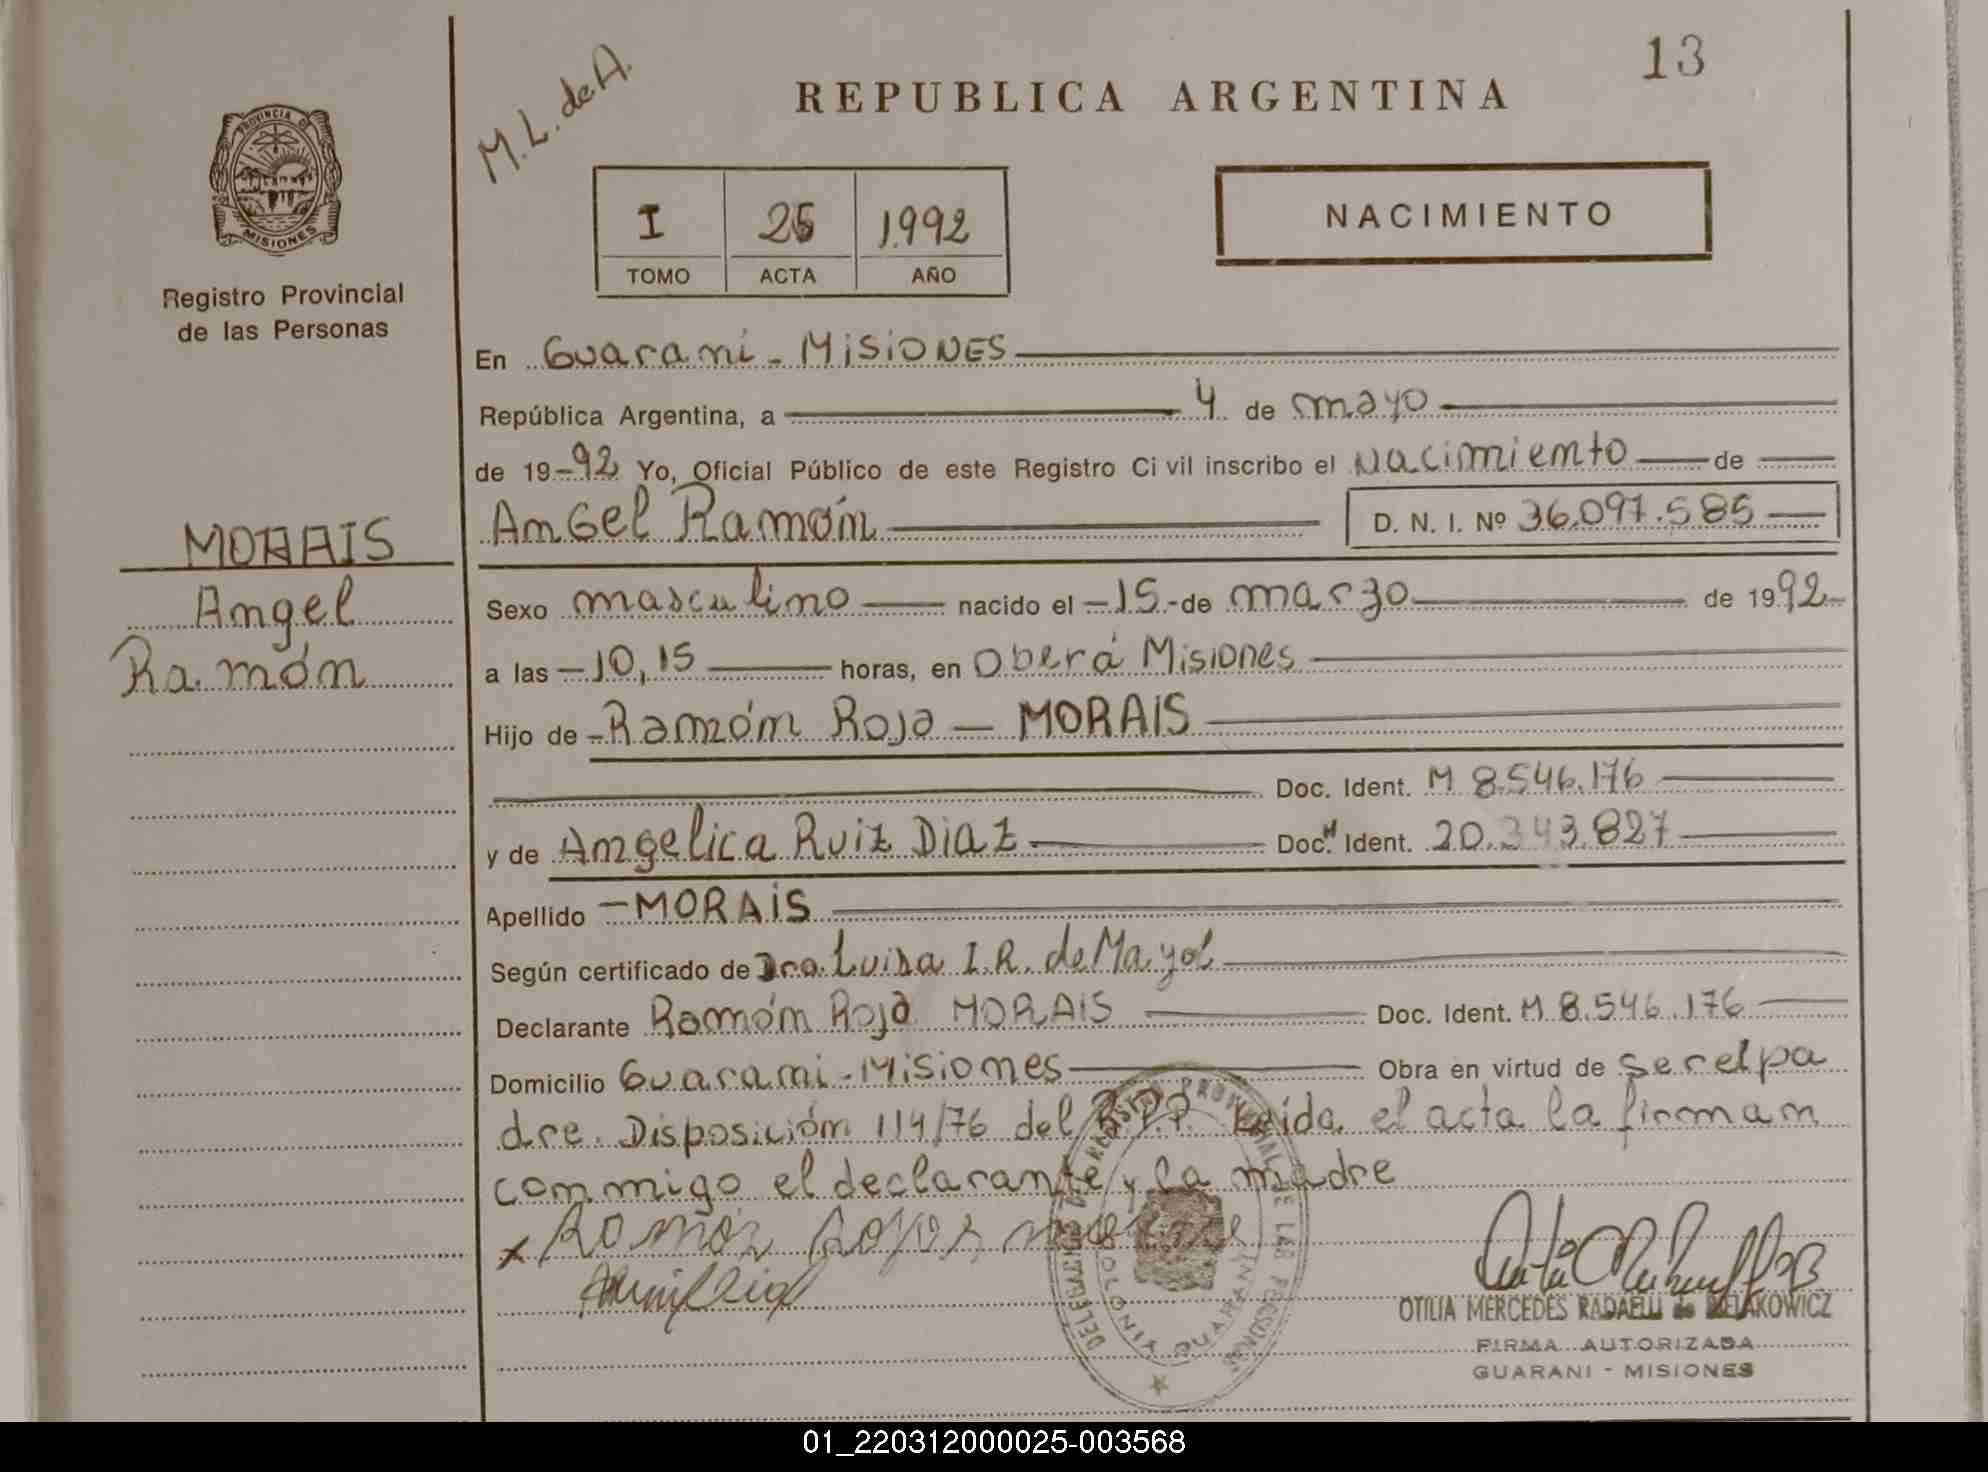 13
M.L. de A.
REPUBLICA ARGENTINA
PROVINCIA DE
MISIONES
Registro Provincial
de las Personas
I 25 1992
TOMO ACTA AÑO
NACIMIENTO
En Guarani - MISIONES
República Argentina, a 4 de mayo
de 19-92 Yo, Oficial Público de este Registro Civil inscribo el Nacimiento de
Angel Ramón D. N. I. Nº 36.097.585
MORAIS
Angel
Ramón
Sexo masculino nacido el -15- de marzo de 1992-
a las -10,15 horas, en Oberá Misiones
Hijo de -Ramón Roja - MORAIS
Doc. Ident. M 8.546.176
y de Angelica Ruiz Diaz Doc. Ident. 20.343.827
Apellido -MORAIS
Según certificado de Dra. Luisa I.R. de Mayol
Declarante Ramón Roja MORAIS Doc. Ident. M 8.546.176
Domicilio Guarani - Misiones Obra en virtud de ser el pa
dre. Disposición 114/76 del R.P.P. Leida el acta la firman
conmigo el declarante y la madre
x Ramón Rojas
DELEGACION REGISTRO PROVINCIAL DE LAS PERSONAS
GUARANI MISIONES
OTILIA MERCEDES RADAELLI de
FIRMA AUTORIZADA
GUARANI - MISIONES
01_220312000025-003568